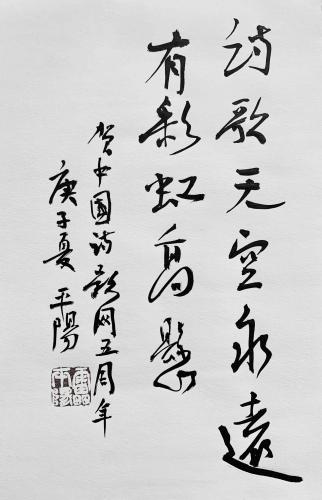 诗歌天空永遠
有彩虹高懸
贺中國诗歌网五周年
庚子夏 平陽